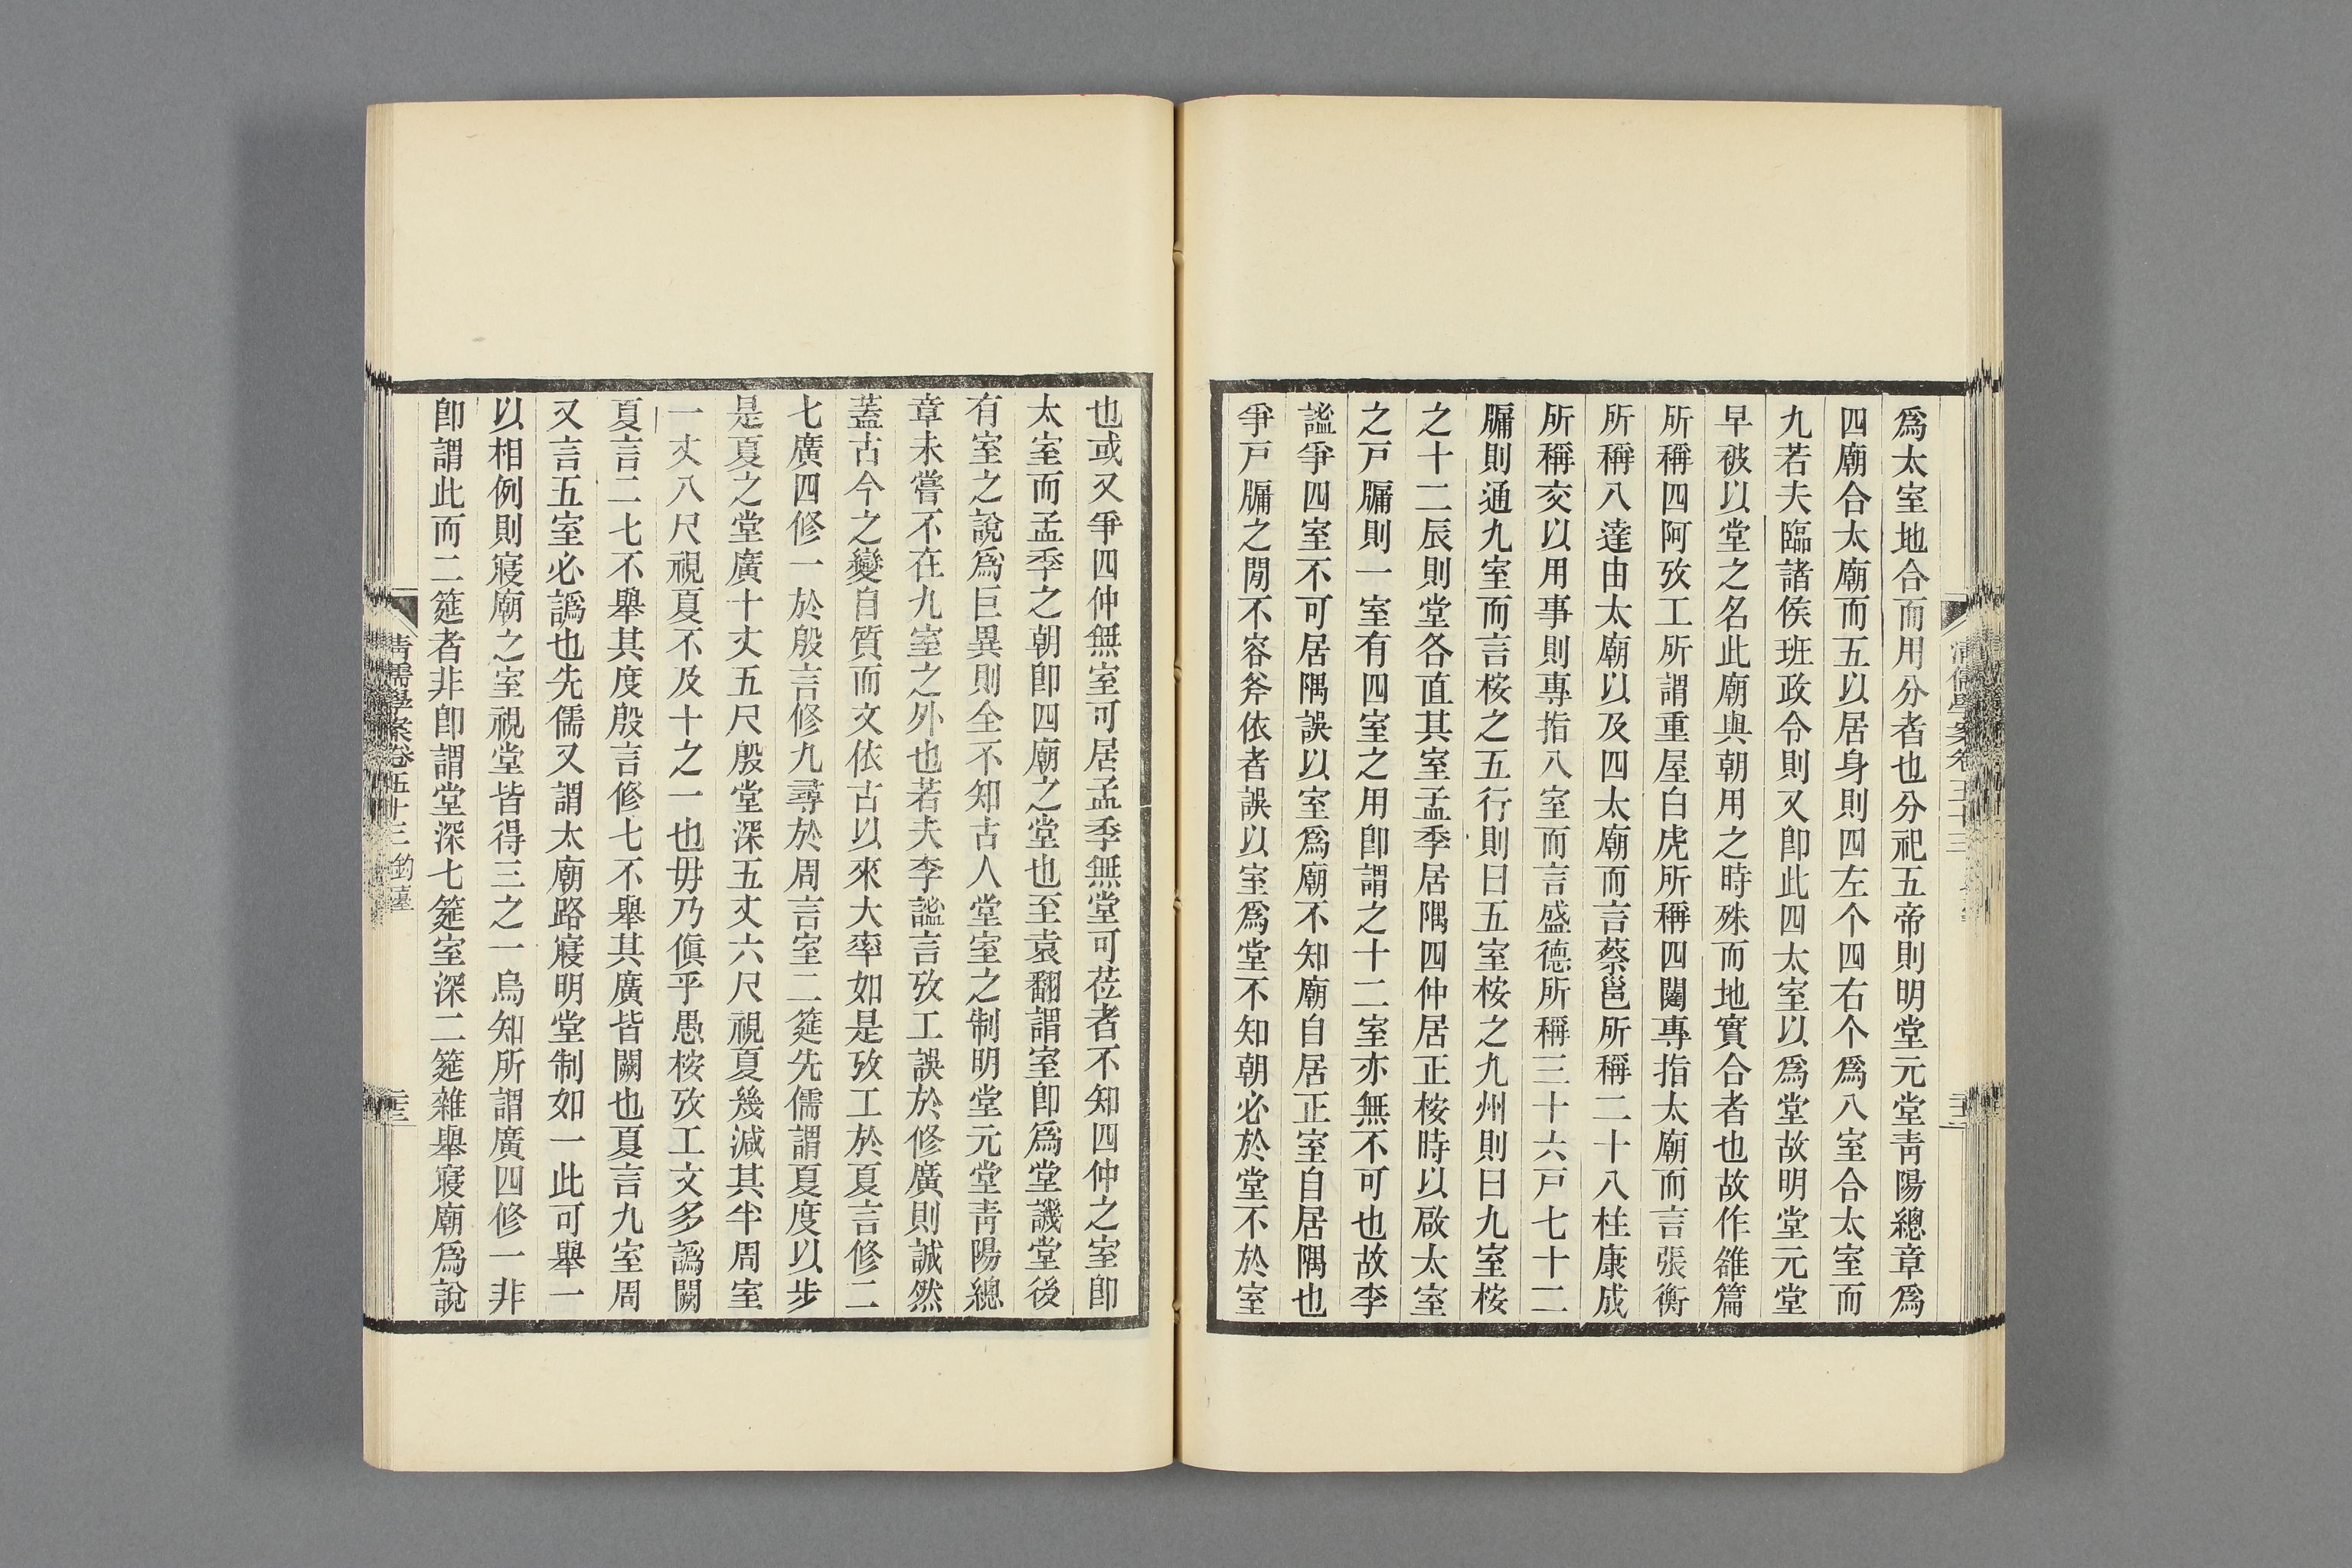 爲太室地合而用分者也分祀五帝則明堂元堂靑陽總章爲
四廟合太廟而五以居身則四左个四右个爲八室合太室而
九若夫臨諸侯班政令則又卽此四太室以爲堂故明堂元堂
早被以堂之名此廟與朝用之時殊而地實合者也故作雒篇
所稱四阿攷工所謂重屋白虎所稱四闥專指太廟而言張衡
所稱八達由太廟以及四太廟而言蔡邕所稱二十八柱康成
所稱交以用事則專指八室而言盛德所稱三十六戸七十二
牖則通九室而言桉之五行則曰五室桉之九州則曰九室桉
之十二辰則堂各直其室孟季居隅四仲居正桉時以啟太室
之戸牖則一室有四室之用卽謂之十二室亦無不可也故李
謐爭四室不可居隅誤以室爲廟不知廟自居正室自居隅也
爭戸牖之閒不容斧依者誤以室爲堂不知朝必於堂不於室
也或又爭四仲無室可居孟季無堂可莅者不知四仲之室卽
太室而孟季之朝卽四廟之堂也至袁翻謂室卽爲堂譏堂後
有室之說爲巨異則全不知古人堂室之制明堂元堂靑陽總
章未嘗不在九室之外也若夫李謐言攷工誤於修廣則誠然
蓋古今之變自質而文依古以來大率如是攷工於夏言修二
七廣四修一於殷言修九尋於周言室二筵先儒謂夏度以步
是夏之堂廣十丈五尺殷堂深五丈六尺視夏幾減其半周室
一丈八尺視夏不及十之一也毋乃傎乎愚桉攷工文多譌闕
夏言二七不舉其度殷言修七不舉其廣皆闕也夏言九室周
又言五室必譌也先儒又謂太廟路寢明堂制如一此可舉一
以相例則寢廟之室視堂皆得三之一烏知所謂廣四修一非
卽謂此而二筵者非卽謂堂深七筵室深二筵雜舉寢廟爲說
清儒學案卷五十三